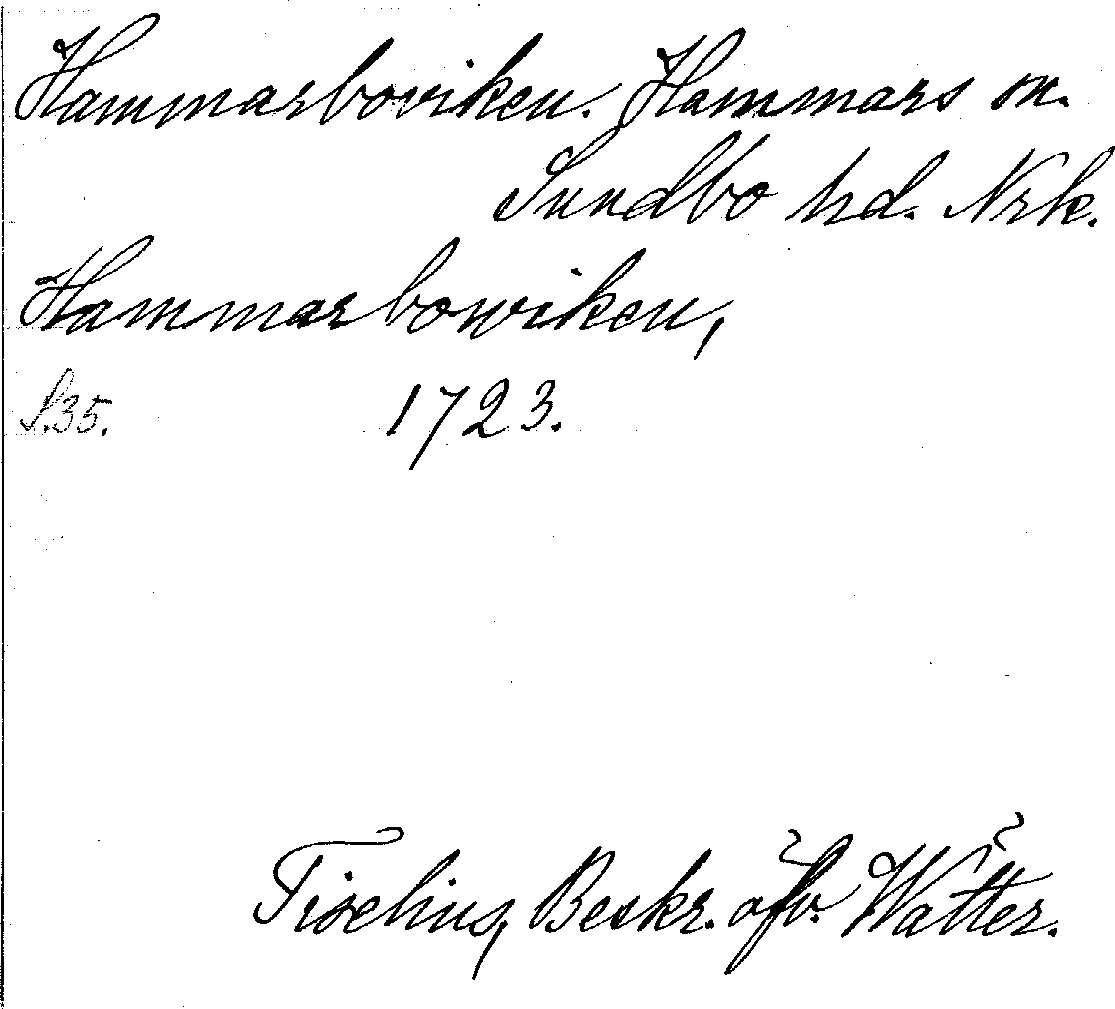 Hammarboviken. Hammars sn.
Sundbo hd. Nrk.
Hammarbowiken,
S.35. 1723.
Tiselius, Beskr. öfv. Wätter.